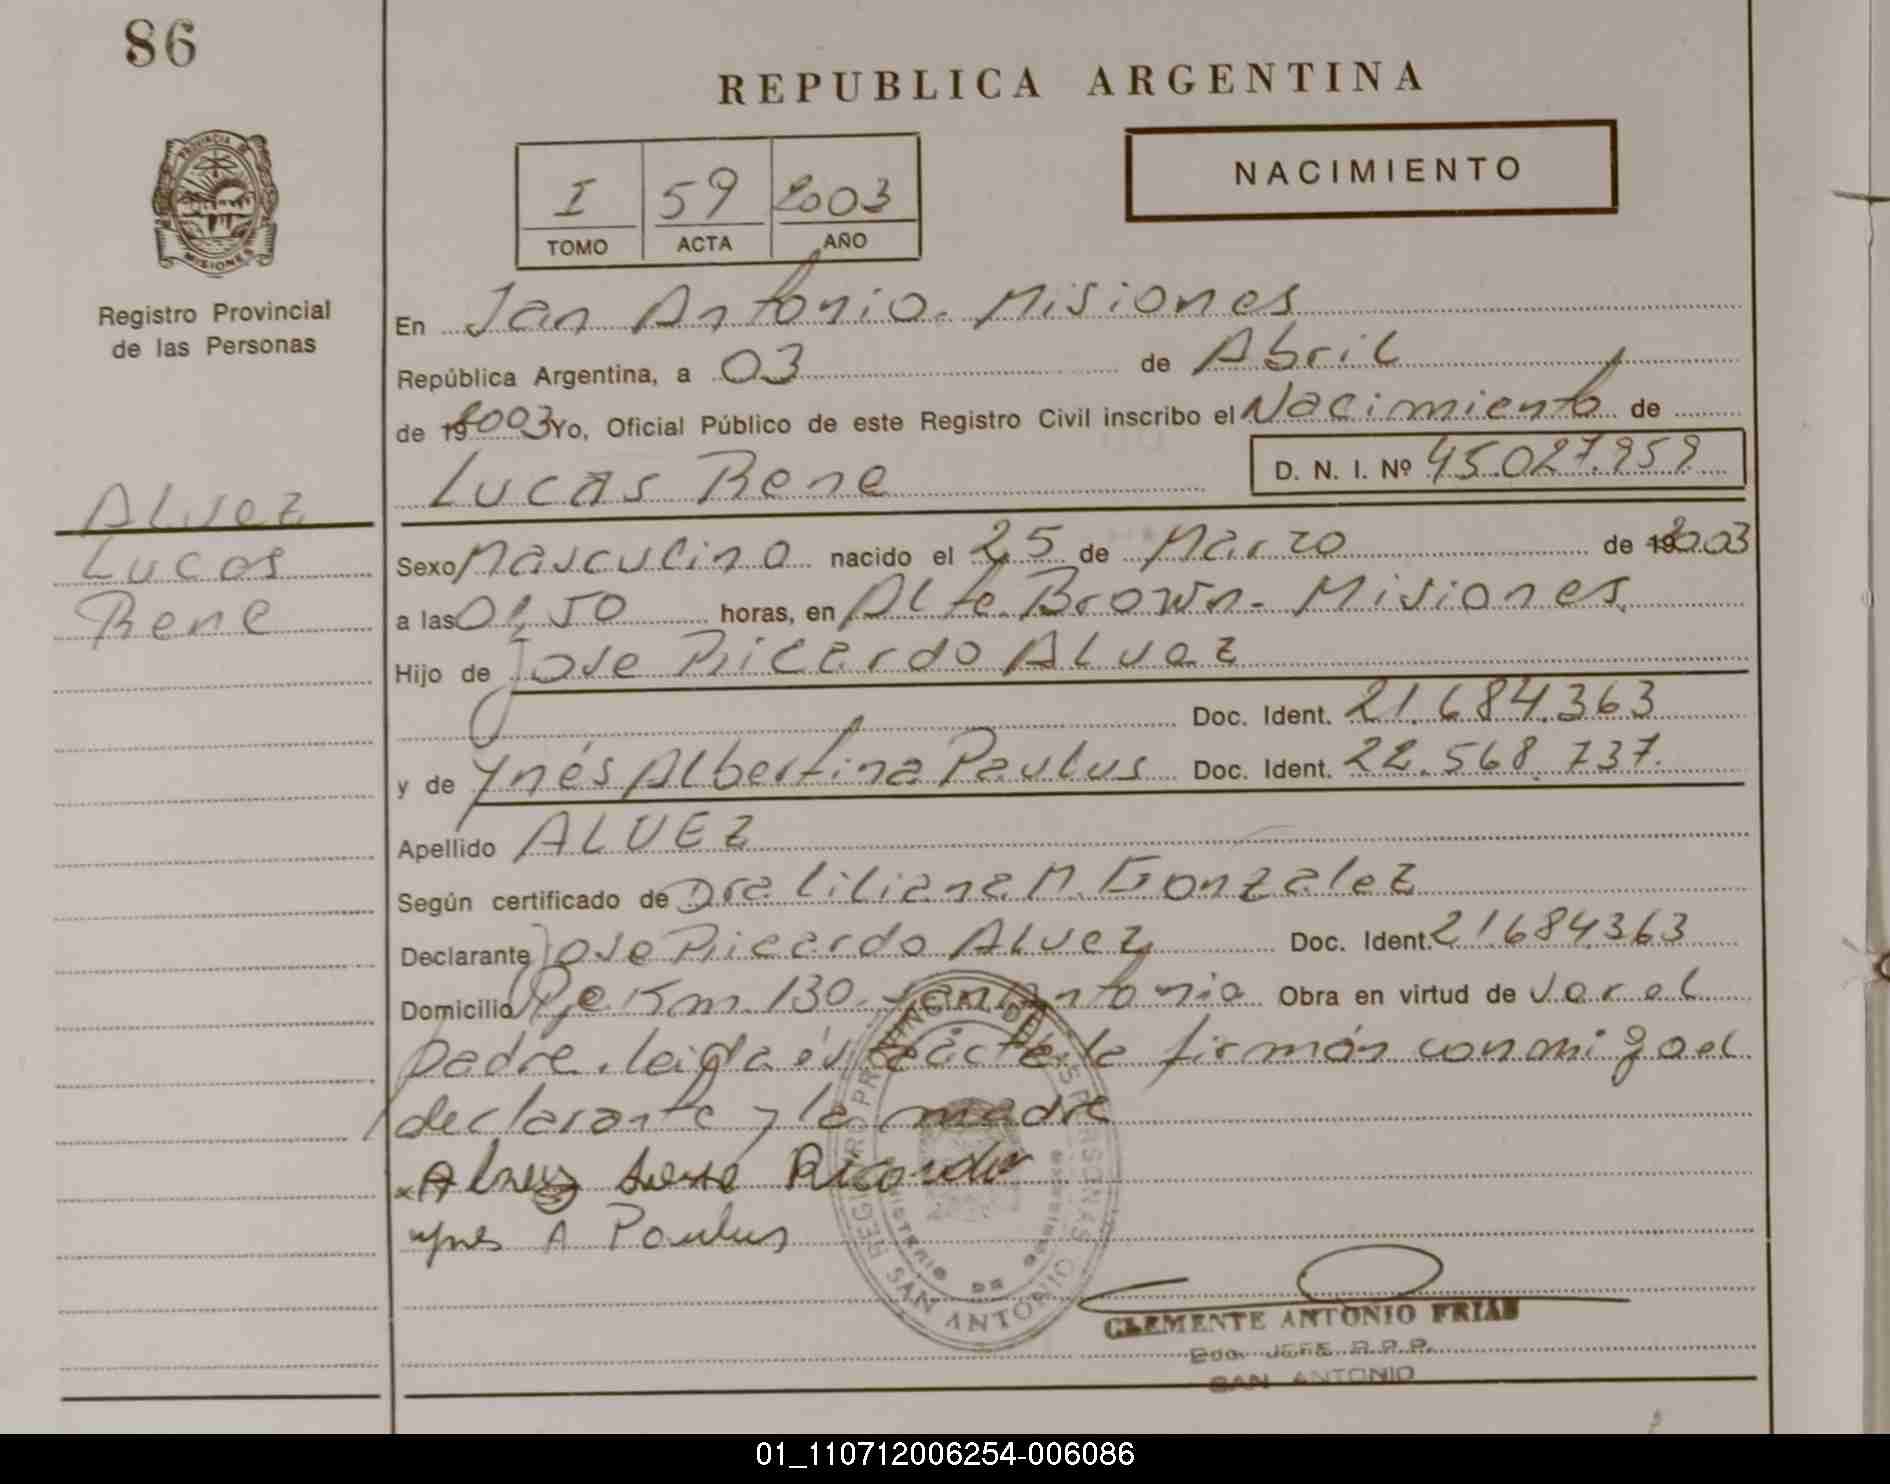 86
REPUBLICA ARGENTINA
PROVINCIA DE MISIONES
I 59 2003
TOMO ACTA AÑO
NACIMIENTO
Registro Provincial
de las Personas
En San Antonio. Misiones
República Argentina, a 03 de Abril
de 19 2003 Yo, Oficial Público de este Registro Civil inscribo el Nacimiento de
Lucas Rene D. N. I. Nº 45.027.959
ALVEZ
Lucas
Rene
Sexo Masculino nacido el 25 de Marzo de 19 2003
a las 01,50 horas, en Alte. Brown - Misiones.
Hijo de Jose Ricardo ALvez
Doc. Ident. 21.684.363
y de Ynés Albertina Paulus Doc. Ident. 22.568.737.
Apellido ALVEZ
Según certificado de Dra Liliana M. Gonzalez
Declarante Jose Ricardo ALvez Doc. Ident. 21684363
Domicilio Pje Km. 130. San Antonio Obra en virtud de ser el
padre. leida el acta la firman conmigo el
declarante y la madre
x Alvez Jose Ricardo
Ynes A Paulus
REGISTRO PROVINCIAL DE LAS PERSONAS
SAN ANTONIO
CLEMENTE ANTONIO FRIAS
JEFE R.P.P.
SAN ANTONIO
01_110712006254-006086